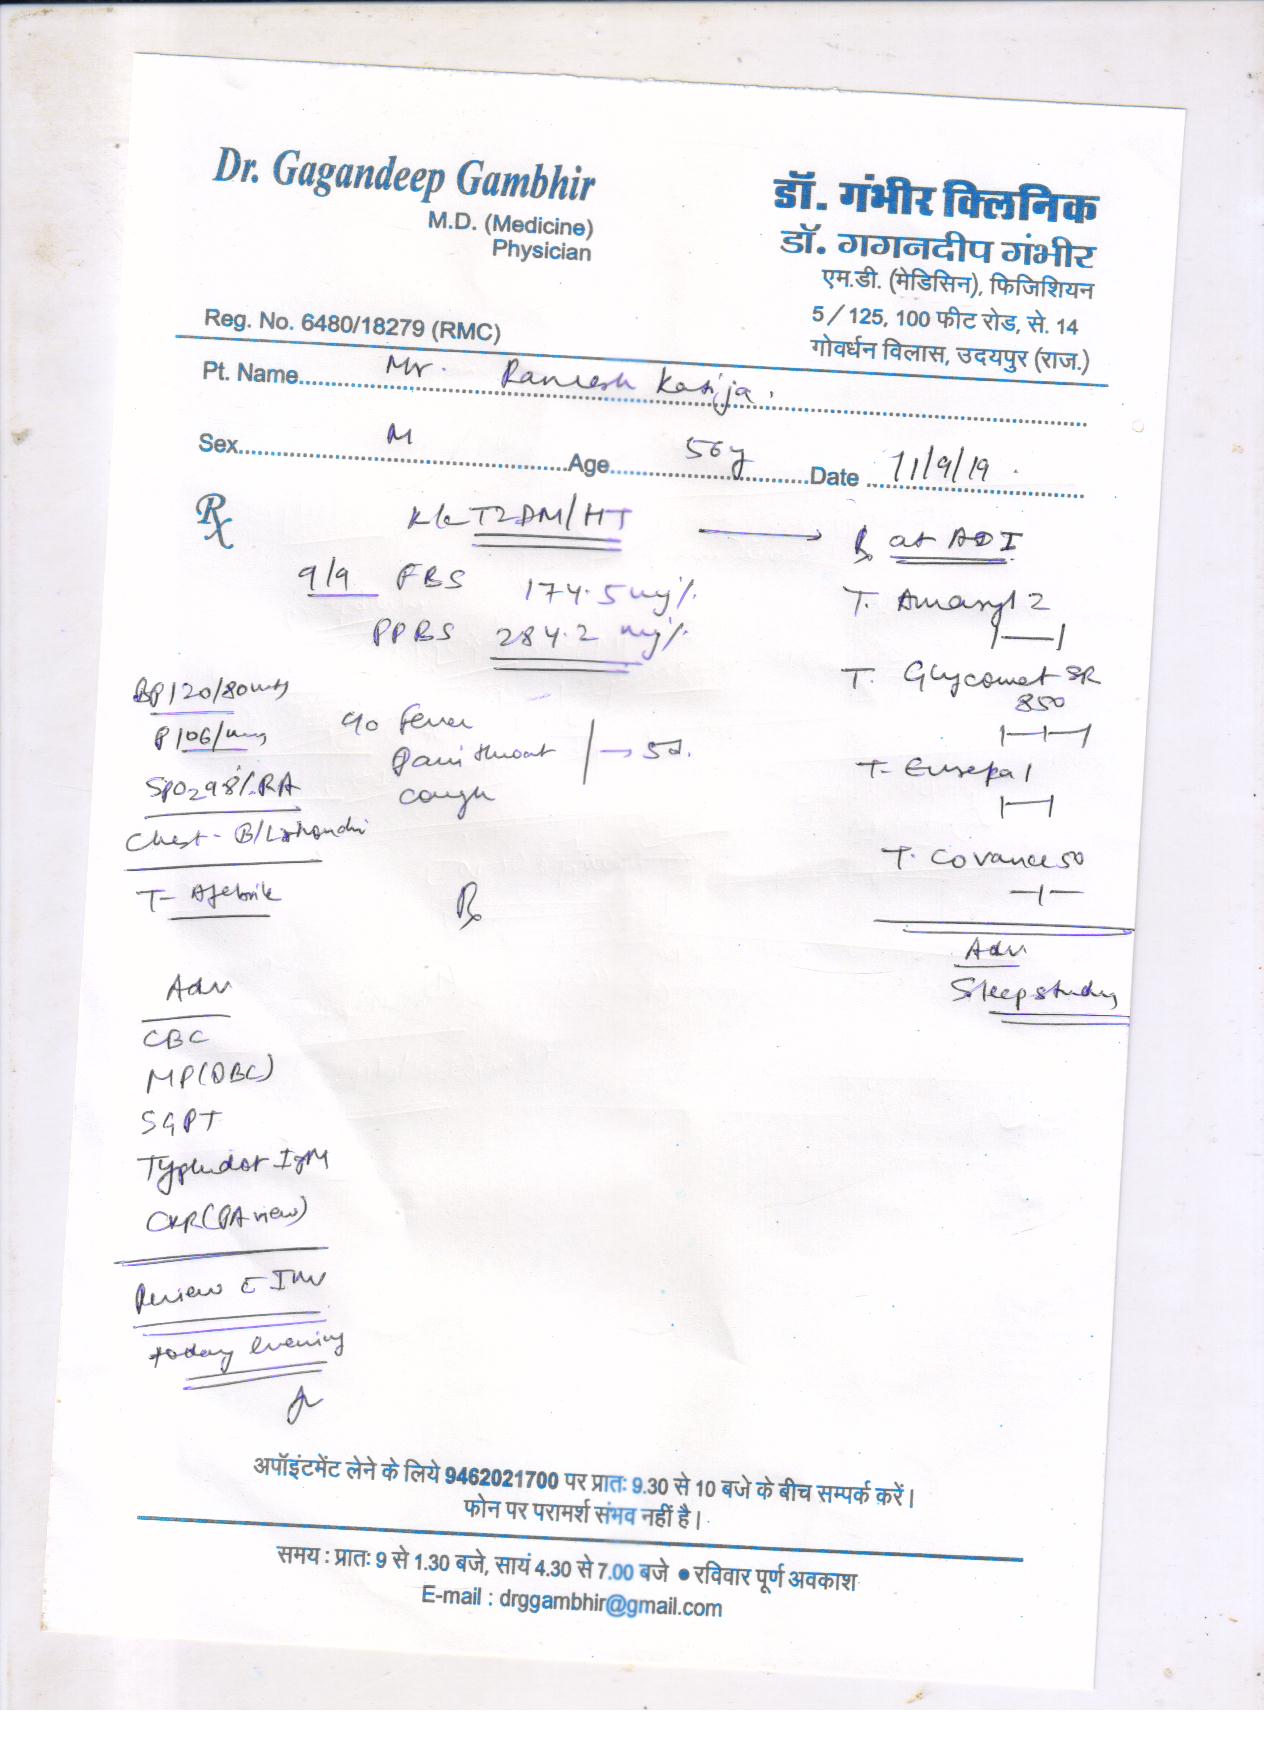 Dr. Gagandeep Gambhir
M.D. (Medicine)
Physician
Reg. No. 6480/18279 (RMC)
डॉ. गंभीर क्लिनिक
डॉ. गगनदीप गंभीर
एम.डी. (मेडिसिन), फिजिशियन
5/125, 100 फीट रोड, से. 14
गोवर्धन विलास, उदयपुर (राज.)
Pt. Name Mr. Ramesh
Sex M Age 56y Date 11/9/19
Rx K/c T2DM/HT
9/9 FBS 174.5 mg%
PPBS 284.2 mg%
BP 120/80
P 106/
SpO2 98% RA
Chest - B/L
T- Afebrile
c/o fever
pain throat → 5d.
cough
Rx
Adv
CBC
MP(QBC)
SGPT
Typhidot IgM
CXR (PA view)
Review c Inv
today evening
Rx at
T. Amaryl 2
T. Glycomet SR
850
T.
T. Covance 50
Adv
Sleep study
अपॉइंटमेंट लेने के लिये 9462021700 पर प्रातः 9.30 से 10 बजे के बीच सम्पर्क करें।
फोन पर परामर्श संभव नहीं है।
समय : प्रातः 9 से 1.30 बजे, सायं 4.30 से 7.00 बजे ● रविवार पूर्ण अवकाश
E-mail : drggambhir@gmail.com